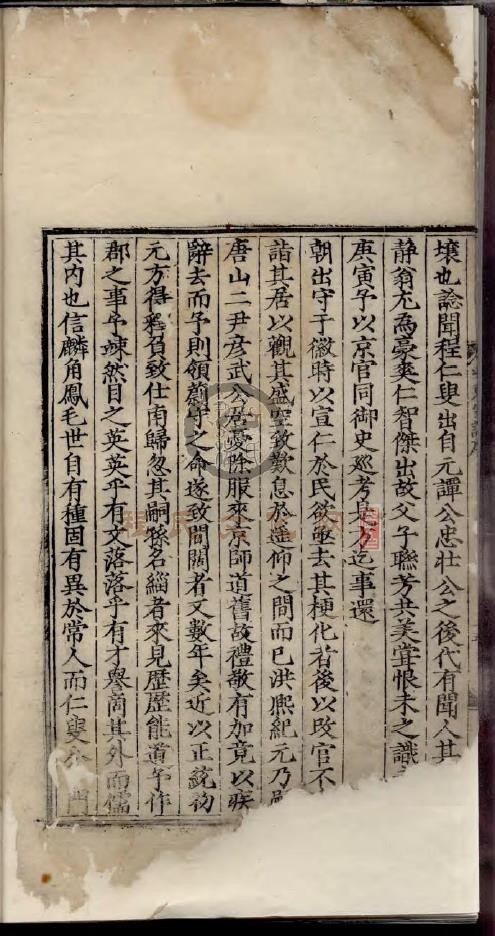 壤也諗聞程仁叟出自元譚公忠壯公之後代有聞人其
静翁尤為豪爽仁智傑出故父子聯芳共美嘗恨未之識
庚寅予以京官同御史巡考是方迄事還
朝出守于徽時以宣仁於民欲亟去其梗化者後以政官不
詣其居以觀其盛空致歎息於遥仰之間而已洪熙紀元乃
唐山二尹彦武公居憂除服來京師道舊故禮敬有加竟以疾
辭去而予則領蔚守之命遂致間闊者又數年矣近以正統初
元方得釋負致仕南歸忽其嗣孫名緇者來見歷歷能道予作
郡之事予竦然目之英英乎有文落落乎有才譽啇其外而儒
其内也信麟角鳳毛世自有種固有異於常人而仁叟 門